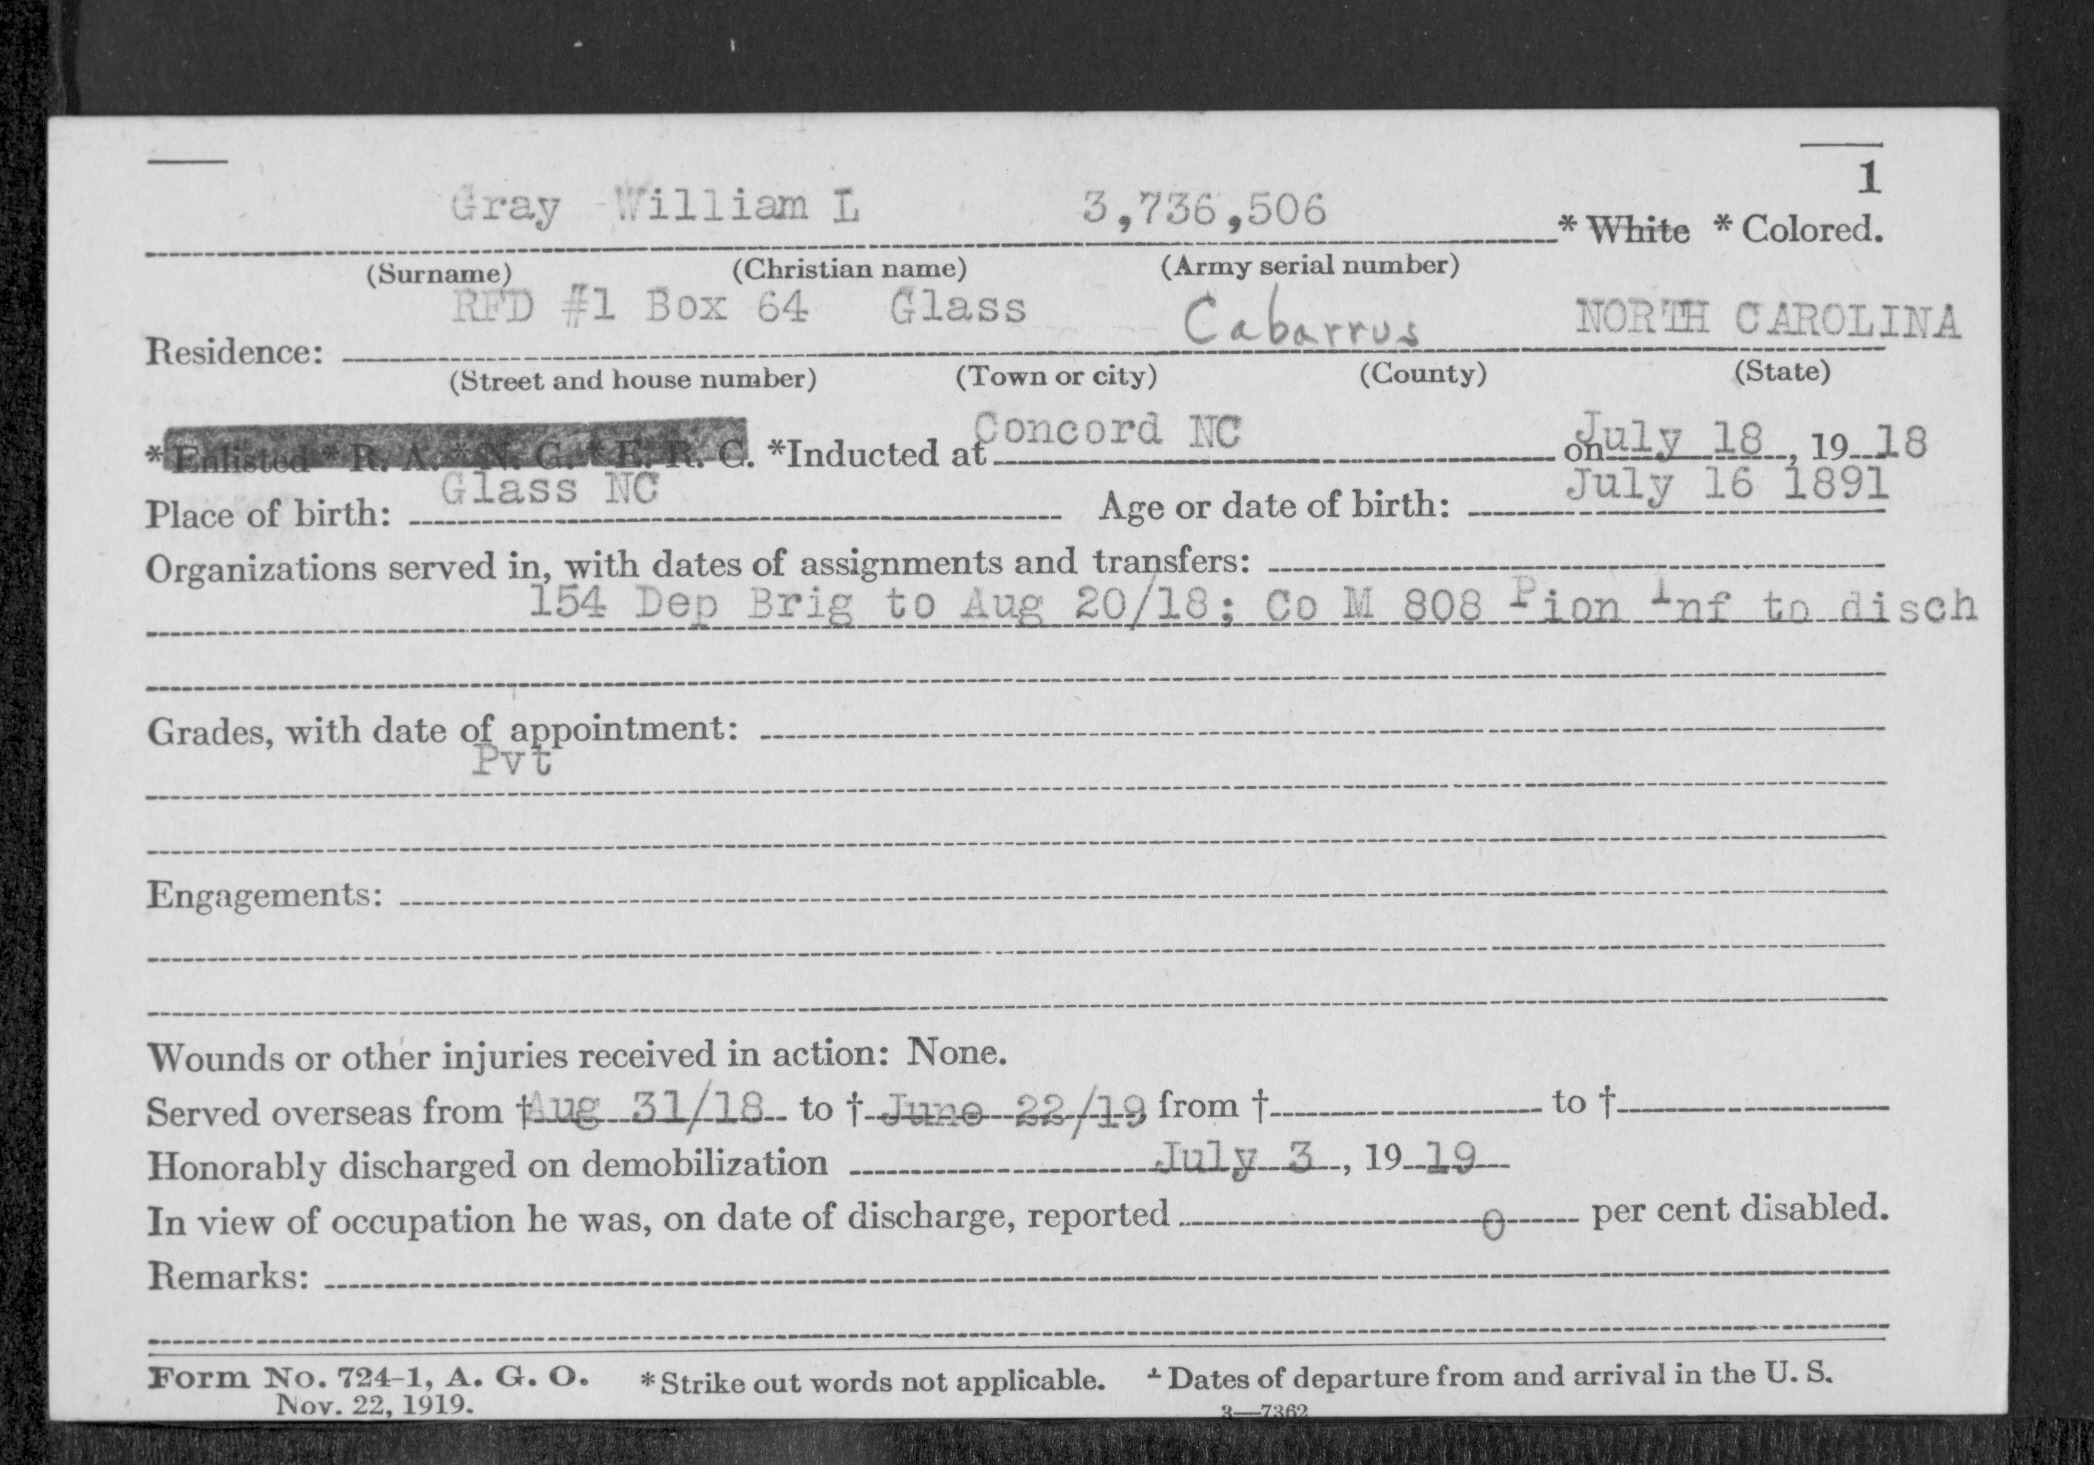 1
Gray William L 3,736,506 * White * Colored.
(Surname) (Christian name) (Army serial number)
RFD #1 Box 64 Glass Cabarrus NORTH CAROLINA
Residence:
(Street and house number) (Town or city) (County) (State)
* Enlisted * R. A. * N. G. * E. R. C. *Inducted at Concord NC on July 18, 19 18
Place of birth: Glass NC Age or date of birth: July 16 1891
Organizations served in, with dates of assignments and transfers:
154 Dep Brig to Aug 20/18; Co M 808 Pion Inf to disch
Grades, with date of appointment:
Pvt
Engagements:
Wounds or other injuries received in action: None.
Served overseas from † Aug 31/18 to † June 22/19 from † to †
Honorably discharged on demobilization July 3, 19 19
In view of occupation he was, on date of discharge, reported 0 per cent disabled.
Remarks:
Form No. 724-1, A. G. O. * Strike out words not applicable. † Dates of departure from and arrival in the U. S.
Nov. 22, 1919. 3—7362